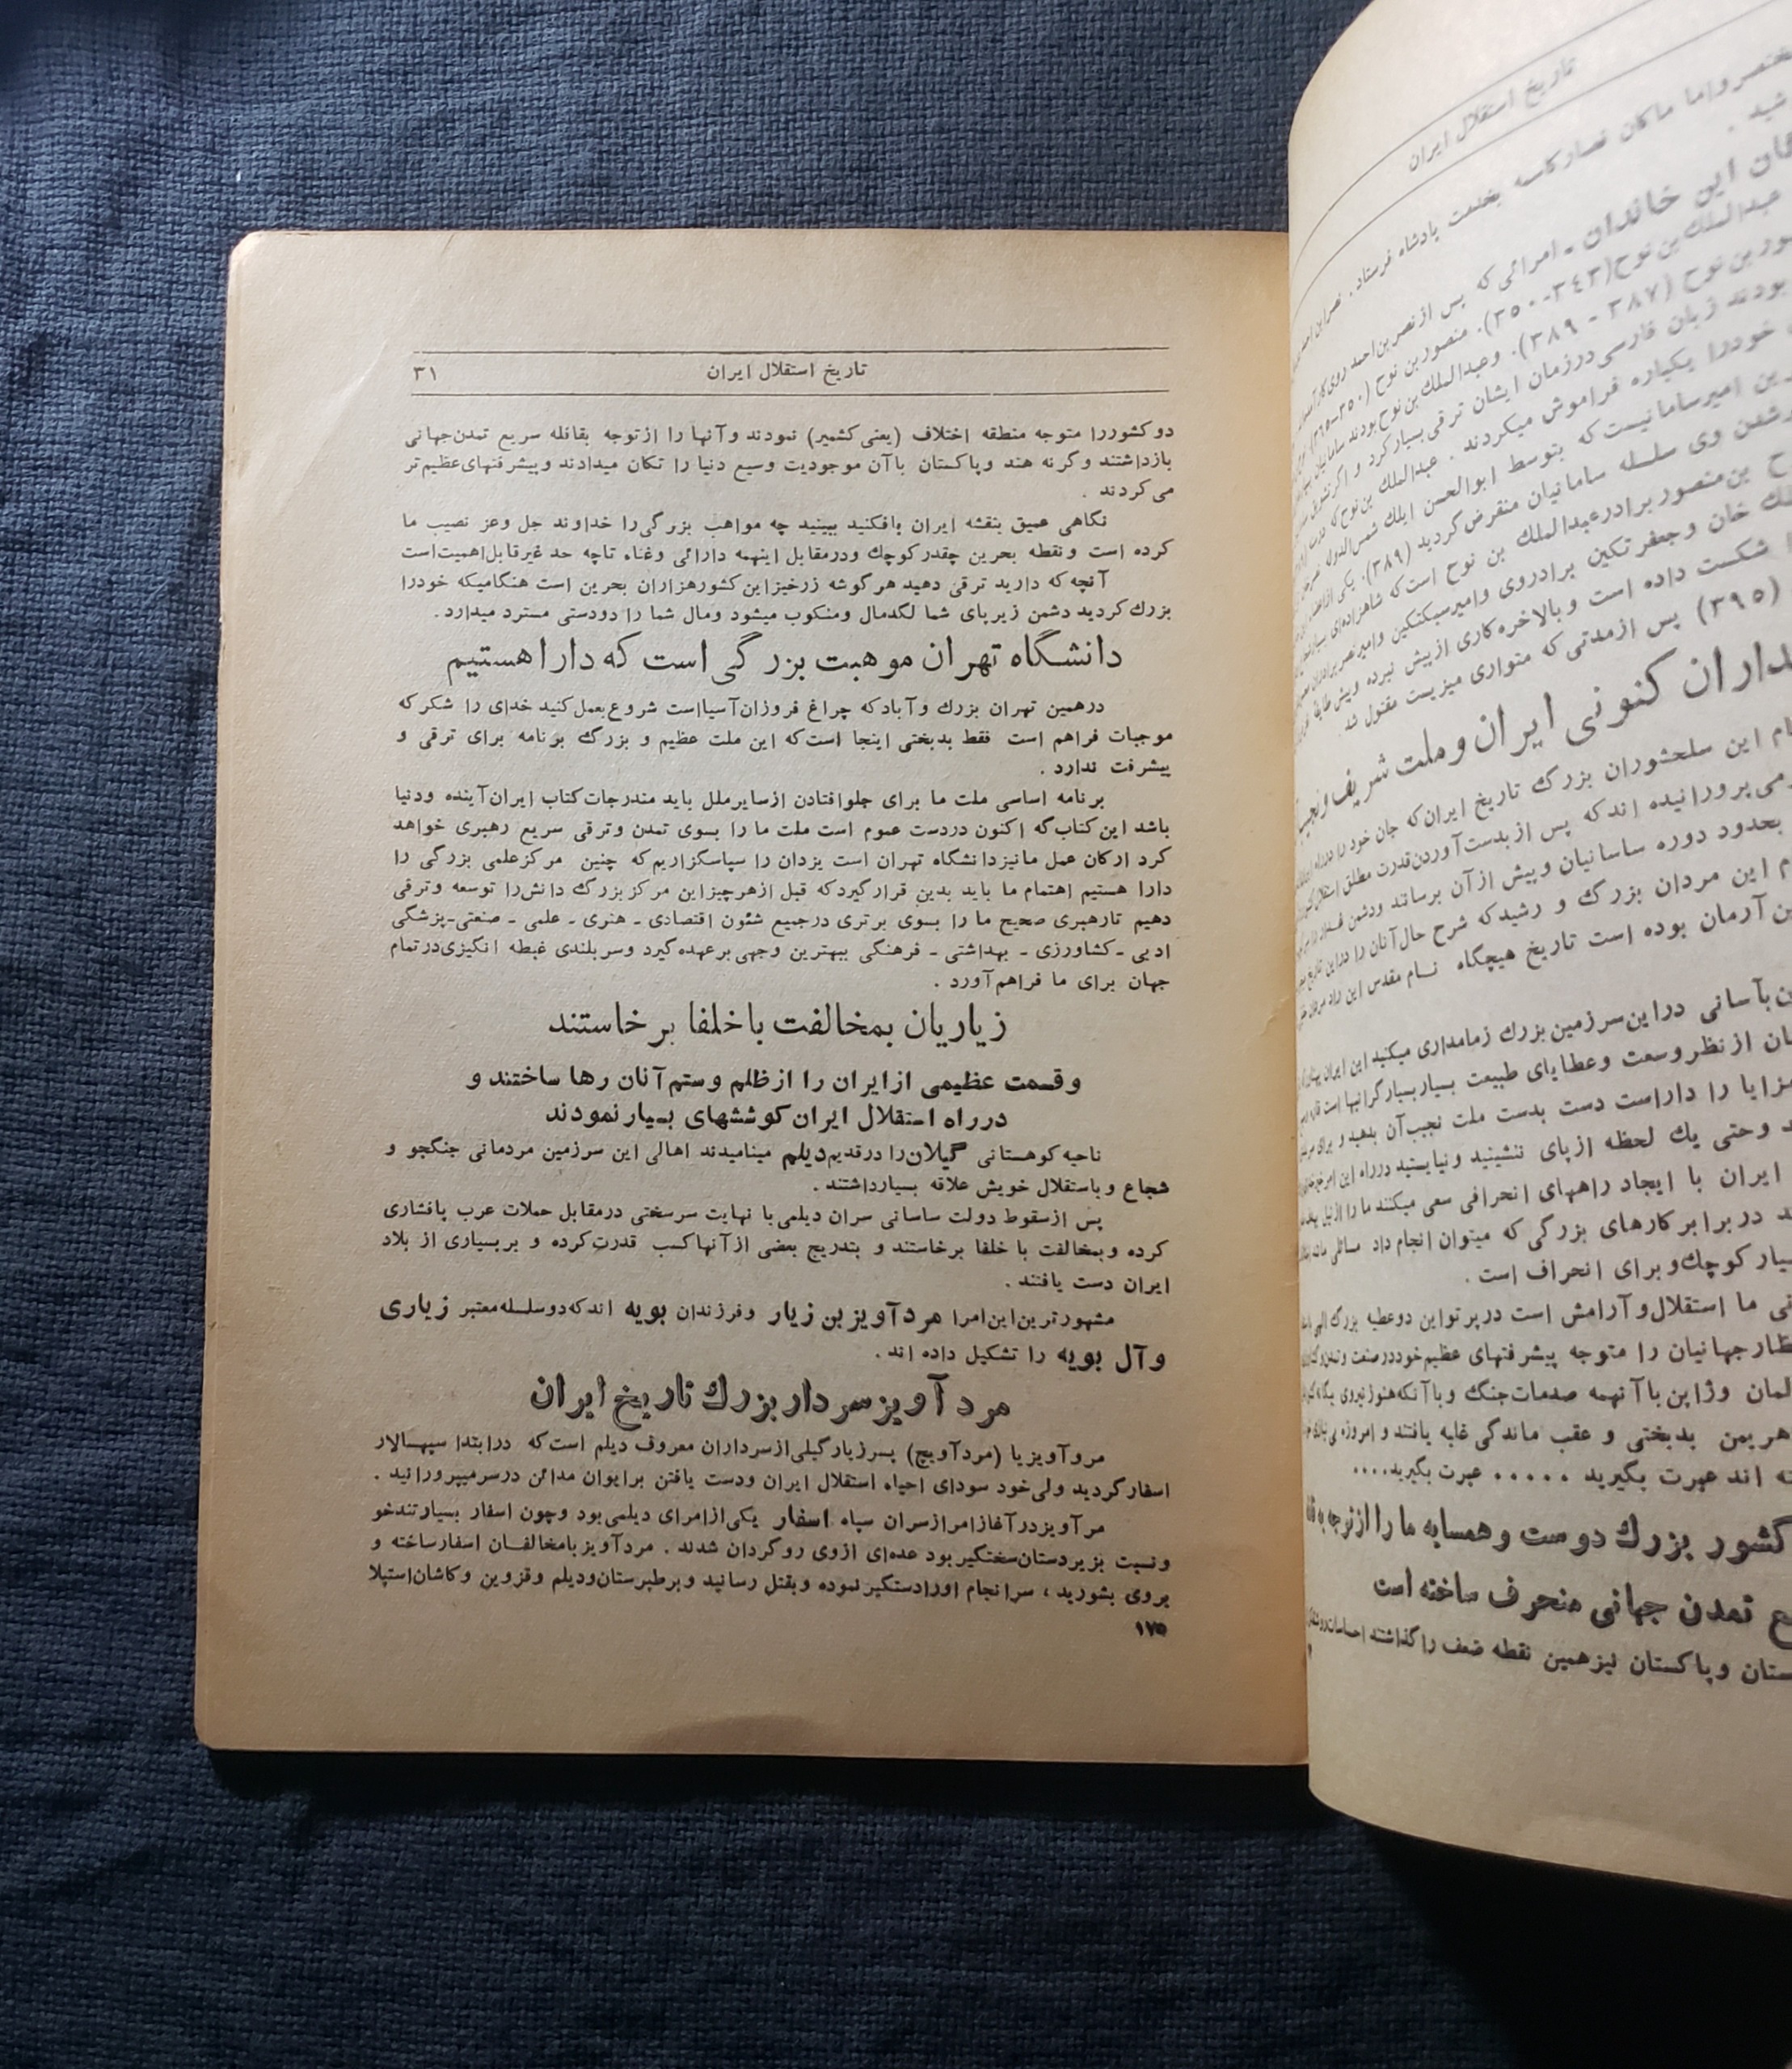 تاریخ استقلال ایران
۳۱
دو کشوررا متوجه منطقه اختلاف (یعنی کشمیر) نمودند و آنها را ازتوجه بقافله سریع تمدن جهانی
بازداشتند وگرنه هند وپاکستان باآن موجودیت وسیع دنیا را تکان میدادند وپیشرفتهای عظیم تر
می کردند .
نگاهی عمیق بنقشه ایران بافکنید ببینید چه مواهب بزرگی را خداوند جل وعز نصیب ما
کرده است ونقطه بحرین چقدر کوچك ودرمقابل اینهمه دارائی وغناء تاچه حد غیرقابل اهمیت است
آنچه که دارید ترقی دهید هر گوشه زرخیز این کشور هزاران بحرین است هنگامیکه خودرا
بزرك کردید دشمن زیرپای شما لگدمال ومنکوب میشود ومال شما را دودستی مسترد میدارد .
دانشگاه تهران موهبت بزرگی است که دارا هستیم
درهمین تهران بزرك و آباد که چراغ فروزان آسیااست شروع بعمل کنید خدای را شکر که
موجبات فراهم است فقط بدبختی اینجا است که این ملت عظیم و بزرگ برنامه برای ترقی و
پیشرفت ندارد .
برنامه اساسی ملت ما برای جلوافتادن ازسایرملل باید مندرجات کتاب ایران آینده ودنیا
باشد این کتاب گه اکنون دردست عموم است ملت ما را بسوی تمدن وترقی سریع رهبری خواهد
کرد ارکان عمل مانیز دانشگاه تهران است یزدان را سپاسگزاریم که چنین مرکز علمی بزرگی را
دارا هستیم اهتمام ما باید بدین قرار گیرد که قبل ازهرچیز این مرکز بزرگ دانش را توسعه وترقی
دهیم تارهبری صحیح ما را بسوی برتری درجمیع شئون اقتصادی - هنری - علمی - صنعتی-پزشکی
ادبی - کشاورزی - بهداشتی - فرهنگی ببهترین وجهی برعهده گیرد وسربلندی غبطه انگیزی درتمام
جهان برای ما فراهم آورد .
زیاریان بمخالفت با خلفا برخاستند
وقسمت عظیمی از ایران را از ظلم وستم آنان رها ساختند و
درراه استقلال ایران کوششهای بسیار نمودند
ناحیه کوهستانی گیلان را درقدیم دیلم مینامیدند اهالی این سرزمین مردمانی جنگجو و
شجاع و باستقلال خویش علاقه بسیار داشتند .
پس ازسقوط دولت ساسانی سران دیلمی با نهایت سرسختی درمقابل حملات عرب پافشاری
کرده و بمخالفت با خلفا برخاستند و بتدریج بعضی از آنها کسب قدرت کرده و بر بسیاری از بلاد
ایران دست یافتند .
مشهورترین این امرا مردآویز بن زیار وفرزندان بویه اند که دوسلسله معتبر زیاری
و آل بویه را تشکیل داده اند .
مرد آویز سردار بزرك تاریخ ایران
مروآویز یا (مردآویج) پسر زیار گیلی از سرداران معروف دیلم است که درابتدا سپهسالار
اسفار گردید ولی خود سودای احیاء استقلال ایران ودست یافتن برایوان مدائن درسرمیپرورانید .
مرآویز در آغاز امر از سران سپاه اسفار یکی از امرای دیلمی بود وچون اسفار بسیار تندخو
ونسبت بزیردستان سختگیر بود عده‌ای ازوی روگردان شدند . مردآویز بامخالفان اسفار ساخته و
بروی بشورید ، سرانجام اورا دستگیر نموده و بقتل رسانید و برطبرستان ودیلم وقزوین وکاشان استیلا
۱۷۵
تاریخ استقلال ایران
این خاندان - امرائی که پس از نصر بن احمد
عبدالملك بن نوح (۳۴۳-۳۵۰). منصور بن نوح
بن نوح (۳۸۷ - ۳۸۹). وعبدالملك بن نوح بودند
بودند زبان فارسی درزمان ایشان ترقی بسیار کرد
خودرا یکباره فراموش میکردند . عبدالملك بن نوح که
امیر سامانیست که بتوسط ابوالحسن ایلك
شدن وی سلسله سامانیان منقرض گردید (۳۸۹).
بن منصور برادر عبدالملك بن نوح است که
خان وجعفر تکین برادروی وامیر سبکتکین
شکست داده است و بالاخره کاری از پیش نبرده
(۳۹۵) پس ازمدتی که متواری میزیست مقتول شد .
کنونی ایران وملت شریف
این سلحشوران بزرگ تاریخ ایران که جان خود را
پرورانیده اند که پس از بدست آوردن قدرت مطلق
بحدود دوره ساسانیان وپیش از آن برسانند ودشمن
این مردان بزرگ و رشید که شرح حال آنان را
آرمان بوده است تاریخ هیچگاه نام مقدس این
بآسانی دراین سرزمین بزرك زمامداری میکنید این ایران
از نظر وسعت وعطایای طبیعت بسیار بسیار گرانبها است
را داراست دست بدست ملت نجیب آن بدهید و برای
وحتی یك لحظه ازپای ننشینید ونیایستید درراه این امر
ایران با ایجاد راههای انحرافی سعی میکنند ما را
در برابر کارهای بزرگی که میتوان انجام داد مسائلی
کوچك و برای انحراف است .
ما استقلال و آرامش است درپرتو این دوعطیه بزرگ
جهانیان را متوجه پیشرفتهای عظیم خود در صنعت
وژاپن باآنهمه صدمات جنگ و باآنکه هنوز نیروی
بدبختی و عقب ماندگی غلبه یافتند و امروزه
اند عبرت بگیرید ..... عبرت بگیرید....
کشور بزرك دوست وهمسایه ما را از توجه
تمدن جهانی منحرف ساخته است
وپاکستان نیز همین نقطه ضعف را گذاشته احساسات